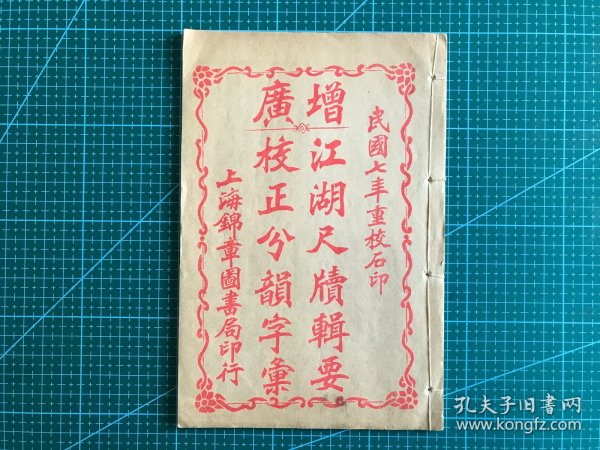 民國七年重校石印
增廣
江湖尺牘輯要
校正分韻字彙
上海錦章圖書局印行
孔夫子旧书网
www.kongfz.com